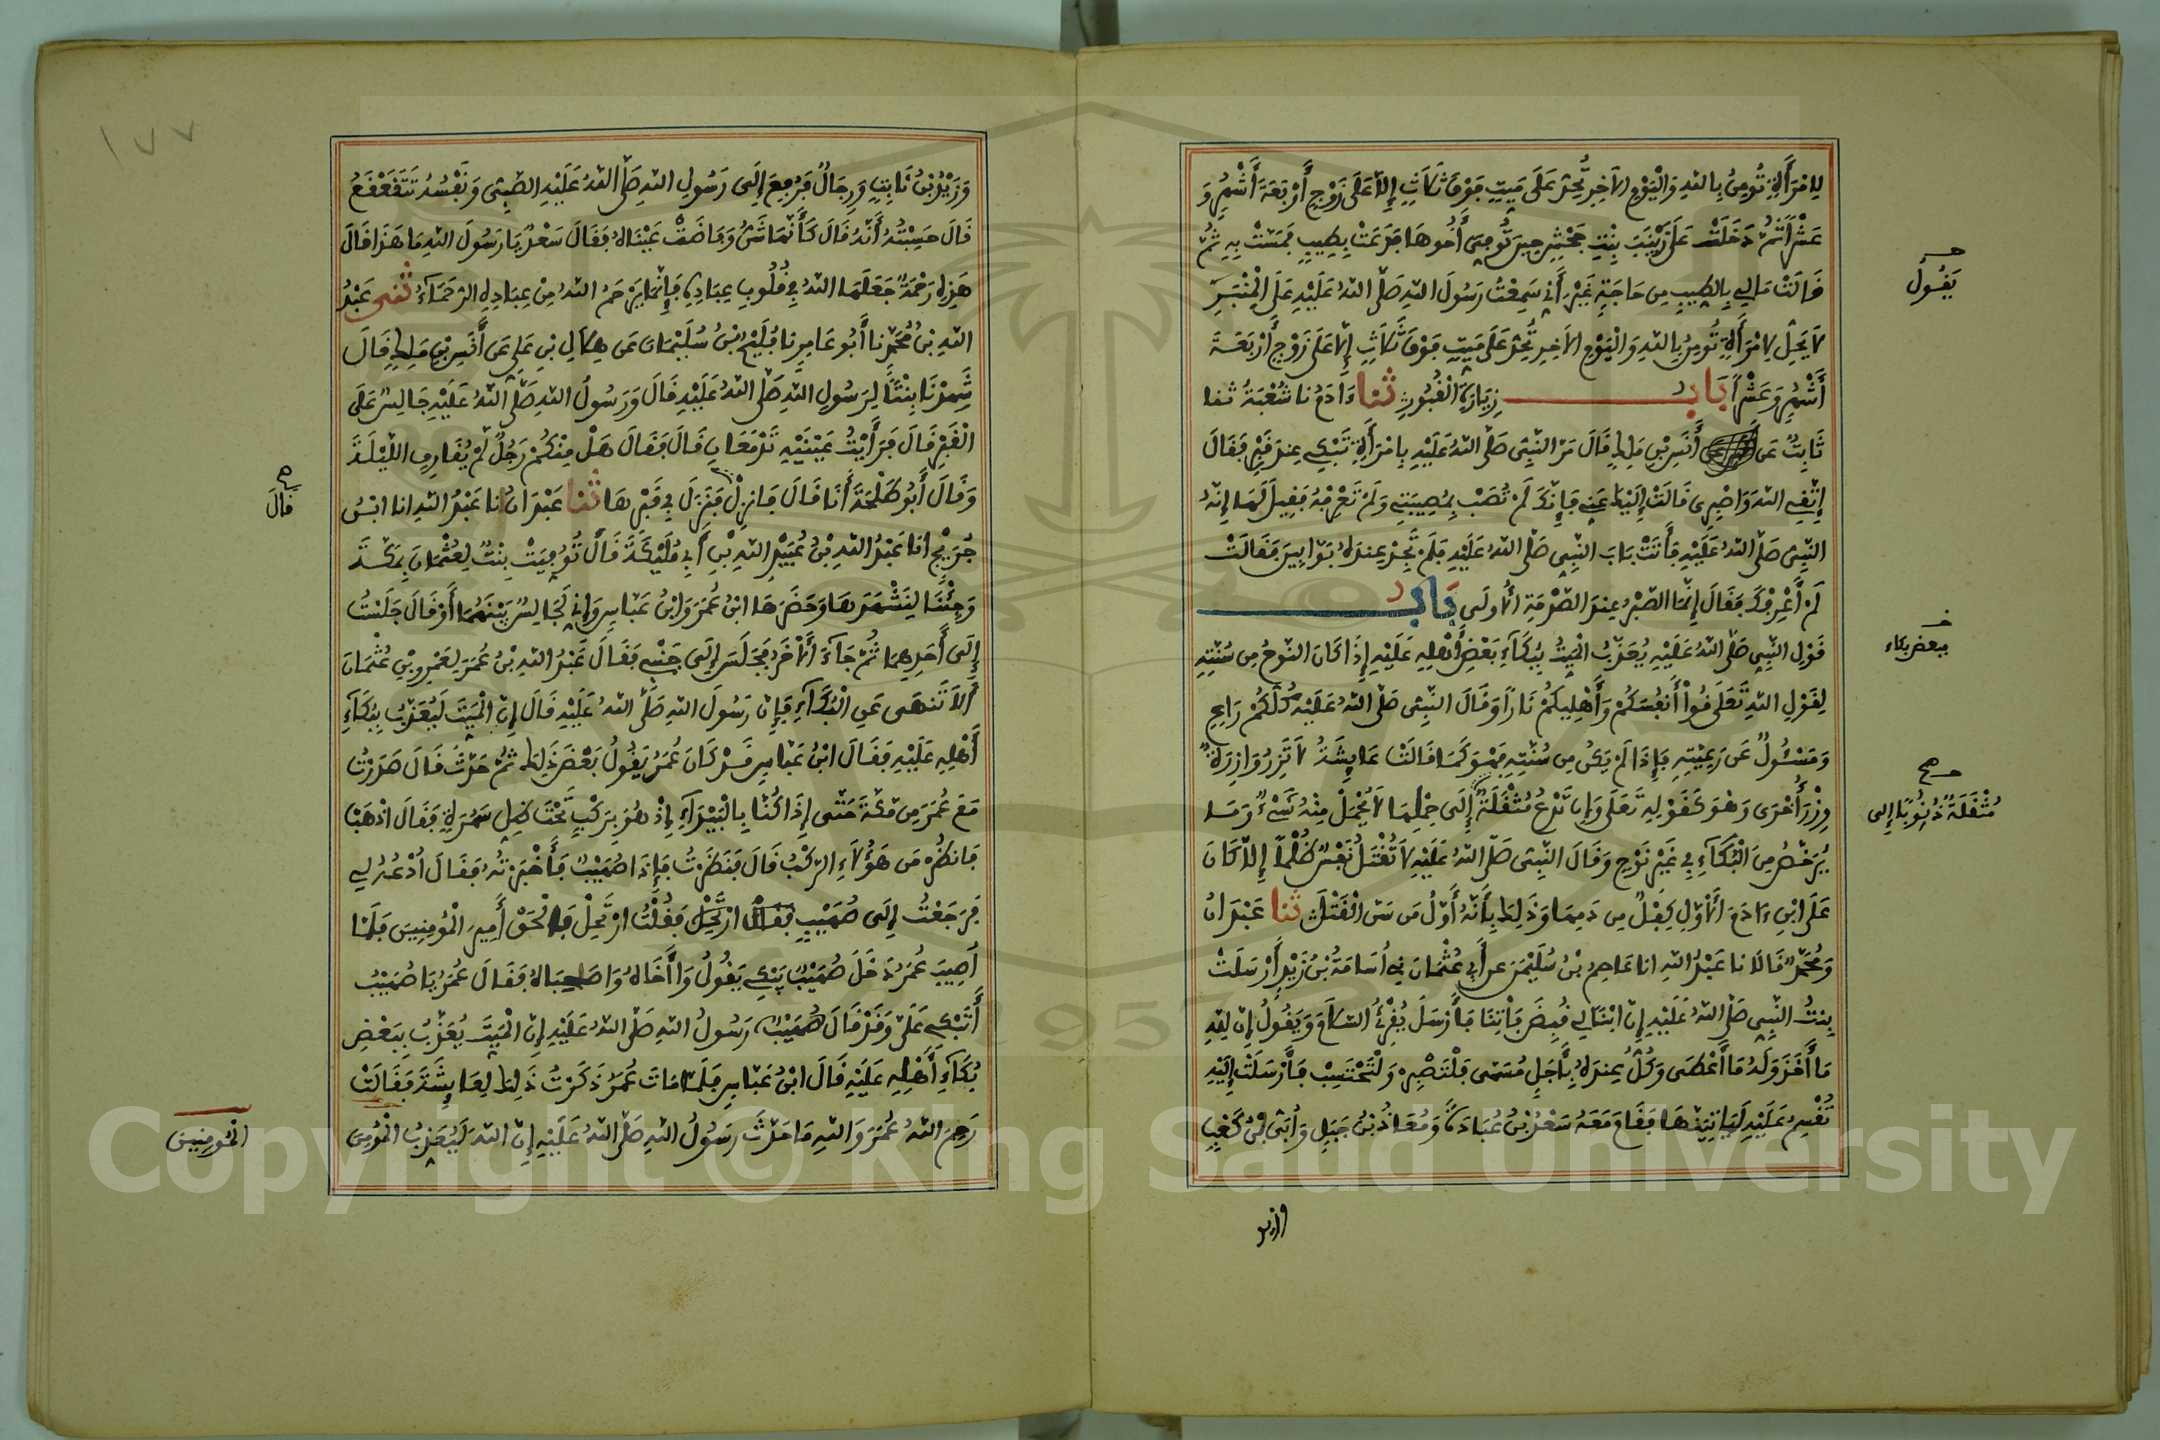 لِامْرَأَةٍ تُومِنُ بِاللهِ وَالْيَوْمِ الاَخِرِ تُحِدُّ عَلَى مَيِّتٍ فَوْقَ ثَلَاثٍ إِلَّا عَلَى زَوْجٍ أَرْبَعَةَ أَشْهُرٍ وَ
عَشْرًا ثُمَّ دَخَلْتُ عَلَى زَيْنَبَ بِنْتِ جَحْشٍ حِينَ تُوُفِّيَ أَخُوهَا فَدَعَتْ بِطِيبٍ فَمَسَّتْ بِهِ ثُمَّ
قَالَتْ مَالِي بِالطِّيبِ مِنْ حَاجَةٍ غَيْرَ أَنِّي سَمِعْتُ رَسُولَ اللهِ صَلَّى اللهُ عَلَيْهِ عَلَى الْمِنْبَرِ
يَقُولُ
لَا يَحِلُّ لِامْرَأَةٍ تُومِنُ بِاللهِ وَالْيَوْمِ الاَخِرِ تُحِدُّ عَلَى مَيِّتٍ فَوْقَ ثَلَاثٍ إِلَّا عَلَى زَوْجٍ أَرْبَعَةَ
أَشْهُرٍ وَعَشْرًا بَاب زِيَارَةِ الْقُبُورِ ثنا ءَادَمُ نا شُعْبَةُ ثنا
ثَابِتٌ عَنْ أَنَسِ بْنِ مَلِكٍ قَالَ مَرَّ النَّبِيُّ صَلَّى اللهُ عَلَيْهِ بِامْرَأَةٍ تَبْكِي عِنْدَ قَبْرٍ فَقَالَ
اتَّقِي اللهَ وَاصْبِرِي قَالَتْ إِلَيْكَ عَنِّي فَإِنَّكَ لَمْ تُصَبْ بِمُصِيبَتِي وَلَمْ تَعْرِفْهُ فَقِيلَ لَهَا إِنَّهُ
النَّبِيُّ صَلَّى اللهُ عَلَيْهِ فَأَتَتْ بَابَ النَّبِيِّ صَلَّى اللهُ عَلَيْهِ فَلَمْ تَجِدْ عِنْدَهُ بَوَّابِينَ فَقَالَتْ
لَمْ أَعْرِفْكَ فَقَالَ إِنَّمَا الصَّبْرُ عِنْدَ الصَّدْمَةِ الْأُولَى بَاب
قَوْلِ النَّبِيِّ صَلَّى اللهُ عَلَيْهِ يُعَذَّبُ الْمَيِّتُ بِبُكَاءِ بَعْضِ أَهْلِهِ عَلَيْهِ إِذَا كَانَ النَّوْحُ مِنْ سُنَّتِهِ
ببعض بكاء
لِقَوْلِ اللهِ تَعَلَى قُوا أَنفُسَكُمْ وَأَهْلِيكُمْ نَارًا وَقَالَ النَّبِيُّ صَلَّى اللهُ عَلَيْهِ كُلُّكُمْ رَاعٍ
وَمَسْئُولٌ عَنْ رَعِيَّتِهِ فَإِذَا لَمْ يَكُنْ مِنْ سُنَّتِهِ فَهُوَ كَمَا قَالَتْ عَايِشَةُ لَا تَزِرُ وَازِرَةٌ
وِزْرَ أُخْرَى وَهْوَ كَقَوْلِهِ تَعَلَى وَإِن تَدْعُ مُثْقَلَةٌ إِلَى حِمْلِهَا لَا يُحْمَلْ مِنْهُ شَيْءٌ وَمَا
مُثْقَلَةٌ ذُنُوبًا إلى
يُرَخَّصُ مِنَ الْبُكَاءِ فِي غَيْرِ نَوْحٍ وَقَالَ النَّبِيُّ صَلَّى اللهُ عَلَيْهِ لَا تُقْتَلُ نَفْسٌ ظُلْمًا إِلَّا كَانَ
عَلَى ابْنِ ءَادَمَ الْأَوَّلِ كِفْلٌ مِنْ دَمِهَا وَذَلِكَ بِأَنَّهُ أَوَّلُ مَنْ سَنَّ الْقَتْلَ ثنا عَبْدَانُ
وَمُحَمَّدٌ قَالَا نا عَبْدُ اللهِ انا عَاصِمُ بْنُ سُلَيْمَنَ عن أَبِي عُثْمَانَ ني أُسَامَةُ بْنُ زَيْدٍ أَرْسَلَتْ
بِنْتُ النَّبِيِّ صَلَّى اللهُ عَلَيْهِ إِنَّ ابْنًا لِي قُبِضَ فَأْتِنَا فَأَرْسَلَ يُقْرِئُ السَّلَامَ وَيَقُولُ إِنَّ لِلهِ
مَا أَخَذَ وَلَهُ مَا أَعْطَى وَكُلٌّ عِنْدَهُ بِأَجَلٍ مُسَمًّى فَلْتَصْبِرْ وَلْتَحْتَسِبْ فَأَرْسَلَتْ إِلَيْهِ
تُقْسِمُ عَلَيْهِ لَيَاتِيَنَّهَا فَقَامَ وَمَعَهُ سَعْدُ بْنُ عُبَادَةَ وَمُعَاذُ بْنُ جَبَلٍ وَأُبَيُّ بْنُ كَعْبٍ
وزيد
١٧٧
وَزَيْدُ بْنُ ثَابِتٍ وَرِجَالٌ فَرُفِعَ إِلَى رَسُولِ اللهِ صَلَّى اللهُ عَلَيْهِ الصَّبِيُّ وَنَفْسُهُ تَتَقَعْقَعُ
قَالَ حَسِبْتُهُ أَنَّهُ قَالَ كَأَنَّهَا شَنٌّ وَفَاضَتْ عَيْنَاهُ فَقَالَ سَعْدٌ يَا رَسُولَ اللهِ مَا هَذَا قَالَ
هَذِهِ رَحْمَةٌ جَعَلَهَا اللهُ فِي قُلُوبِ عِبَادِهِ فَإِنَّمَا يَرْحَمُ اللهُ مِنْ عِبَادِهِ الرُّحَمَاءَ ثني عَبْدُ
اللهِ بْنُ مُحَمَّدٍ نا أَبُو عَامِرٍ نا فُلَيْحُ بْنُ سُلَيْمَانَ عَنْ هِلَالِ بْنِ عَلِيٍّ عَنْ أَنَسِ بْنِ مَلِكٍ قَالَ
شَهِدْنَا بِنْتًا لِرَسُولِ اللهِ صَلَّى اللهُ عَلَيْهِ قَالَ وَرَسُولُ اللهِ صَلَّى اللهُ عَلَيْهِ جَالِسٌ عَلَى
الْقَبْرِ قَالَ فَرَأَيْتُ عَيْنَيْهِ تَدْمَعَانِ قَالَ فَقَالَ هَلْ مِنْكُمْ رَجُلٌ لَمْ يُقَارِفِ اللَّيْلَةَ
وَقَالَ أَبُو طَلْحَةَ أَنَا قَالَ فَانزِلْ فَنَزَلَ فِي قَبْرِهَا ثنا عَبْدَانُ نا عَبْدُ اللهِ انا ابْنُ
قَالَ
جُرَيْجٍ انا عَبْدُ اللهِ بْنُ عُبَيْدِ اللهِ بْنِ أَبِي مُلَيْكَةَ قَالَ تُوُفِّيَتْ بِنْتٌ لِعُثْمَانَ بِمَكَّةَ
وَجِئْنَا لِنَشْهَدَهَا وَحَضَرَهَا ابْنُ عُمَرَ وَابْنُ عَبَّاسٍ وَإِنِّي لَجَالِسٌ بَيْنَهُمَا أَوْ قَالَ جَلَسْتُ
إِلَى أَحَدِهِمَا ثُمَّ جَاءَ الْأَخَرُ فَجَلَسَ إِلَى جَنْبِي فَقَالَ عَبْدُ اللهِ بْنُ عُمَرَ لِعَمْرِو بْنِ عُثْمَانَ
أَلَا تَنْهَى عَنِ الْبُكَاءِ فَإِنَّ رَسُولَ اللهِ صَلَّى اللهُ عَلَيْهِ قَالَ إِنَّ الْمَيِّتَ لَيُعَذَّبُ بِبُكَاءِ
أَهْلِهِ عَلَيْهِ فَقَالَ ابْنُ عَبَّاسٍ قَدْ كَانَ عُمَرُ يَقُولُ بَعْضَ ذَلِكَ ثُمَّ حَدَّثَ قَالَ صَدَرْتُ
مَعَ عُمَرَ مِنْ مَكَّةَ حَتَّى إِذَا كُنَّا بِالْبَيْدَاءِ إِذْ هُوَ بِرَكْبٍ تَحْتَ ظِلِّ سَمُرَةٍ فَقَالَ اذْهَبْ
فَانظُرْ مَنْ هَؤُلَاءِ الرَّكْبُ قَالَ فَنَظَرْتُ فَإِذَا صُهَيْبٌ فَأَخْبَرْتُهُ فَقَالَ ادْعُهُ لِي
فَرَجَعْتُ إِلَى صُهَيْبٍ فَقُلْتُ ارْتَحِلْ فَالْحَقْ أَمِيرَ الْمُومِنِينَ فَلَمَّا
أُصِيبَ عُمَرُ دَخَلَ صُهَيْبٌ يَبْكِي يَقُولُ وَاأَخَاهُ وَاصَاحِبَاهُ فَقَالَ عُمَرُ يَا صُهَيْبُ
أَتَبْكِي عَلَيَّ وَقَدْ قَالَ رَسُولُ اللهِ صَلَّى اللهُ عَلَيْهِ إِنَّ الْمَيِّتَ يُعَذَّبُ بِبَعْضِ
بُكَاءِ أَهْلِهِ عَلَيْهِ قَالَ ابْنُ عَبَّاسٍ فَلَمَّا مَاتَ عُمَرُ ذَكَرْتُ ذَلِكَ لِعَايِشَةَ فَقَالَتْ
رَحِمَ اللهُ عُمَرَ وَاللهِ مَا حَدَّثَ رَسُولُ اللهِ صَلَّى اللهُ عَلَيْهِ إِنَّ اللهَ لَيُعَذِّبُ الْمُومِنَ
الْمُومِنِينَ
Copyright © King Saud University
1957